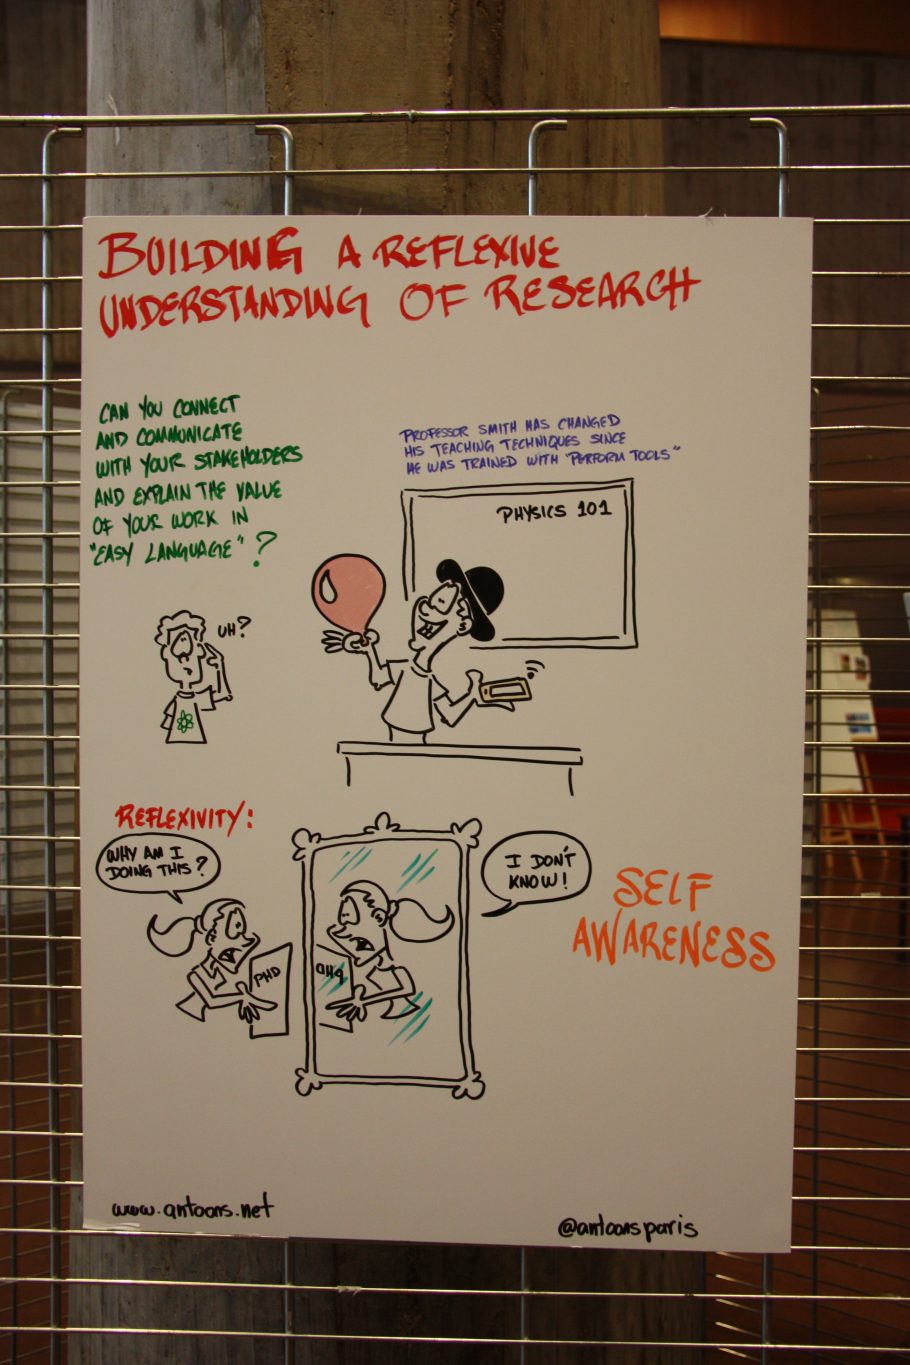 BUILDING A REFLEXIVE
UNDERSTANDING OF RESEARCH
CAN YOU CONNECT
AND COMMUNICATE
WITH YOUR STAKEHOLDERS
AND EXPLAIN THE VALUE
OF YOUR WORK IN
"EASY LANGUAGE"?
UH?
PROFESSOR SMITH HAS CHANGED
HIS TEACHING TECHNIQUES SINCE
HE WAS TRAINED WITH "PERFORM TOOLS"
PHYSICS 101
REFLEXIVITY:
WHY AM I
DOING THIS?
PHD
PHD
I DON'T
KNOW!
SELF
AWARENESS
www.antoons.net
@antoonsparis